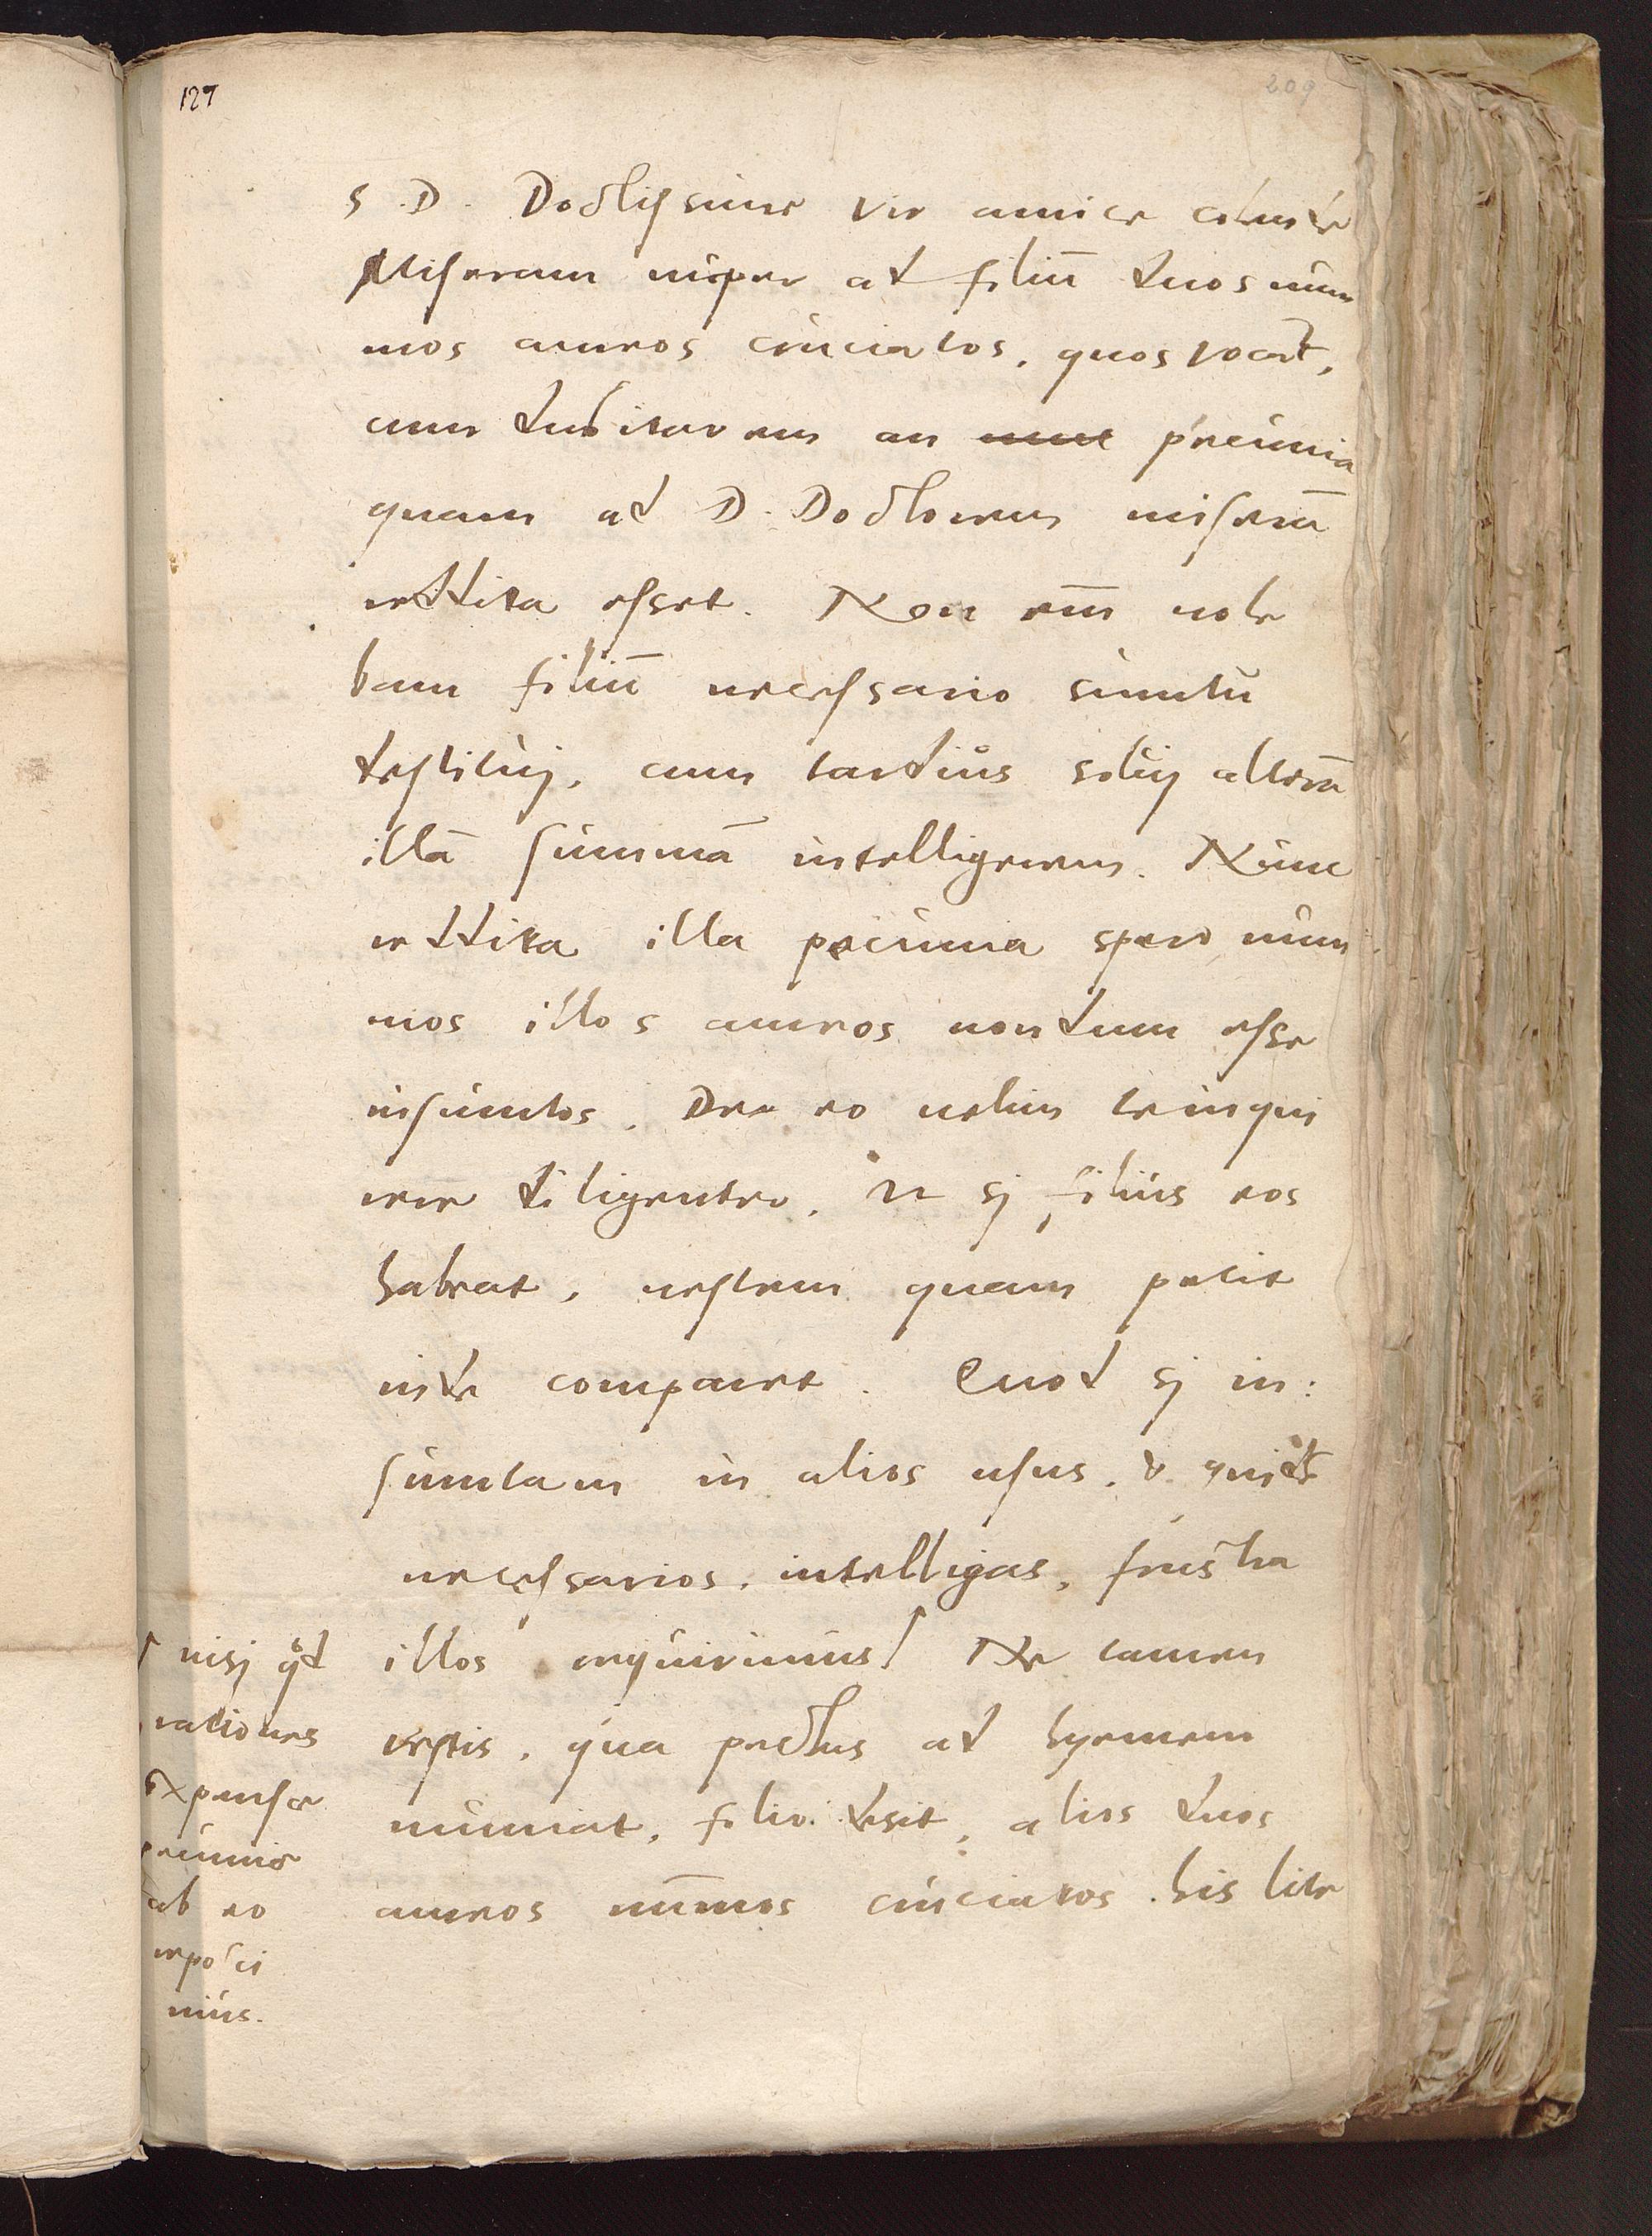 127
209
S . D . Doctissime vir amice colende
Miseram nuper ad filiū duos num
mos aureos cruciatos, quos vocāt,
cum dubitarem an nunc pecunia
quam ad D. Doctorem miserā
reddita esset. Non em̄ vole
bam filiū necessario sumtū
destituj, cum tardius soluj alterā
illā summā intelligerem. Nunc
reddita illa pecunia spero num
mos illos aureos nondum esse
insumtos. De eo velim te inqui
rere diligenter, ut sj filius eos
habeat, vestem quam petit
inde comparet. Quod sj in:
sumtam in alios usus, & quidē
necessarios, intelligas, frustra
illos requirimus/ Ne tamen
vestis, qua pectus ad hyemem
muniat, filio desit, alios duos
aureos nūmos cruciatos his lite
/ nisj qd
rationes
expensæ
pecuniæ
ab eo
reposci
mus.